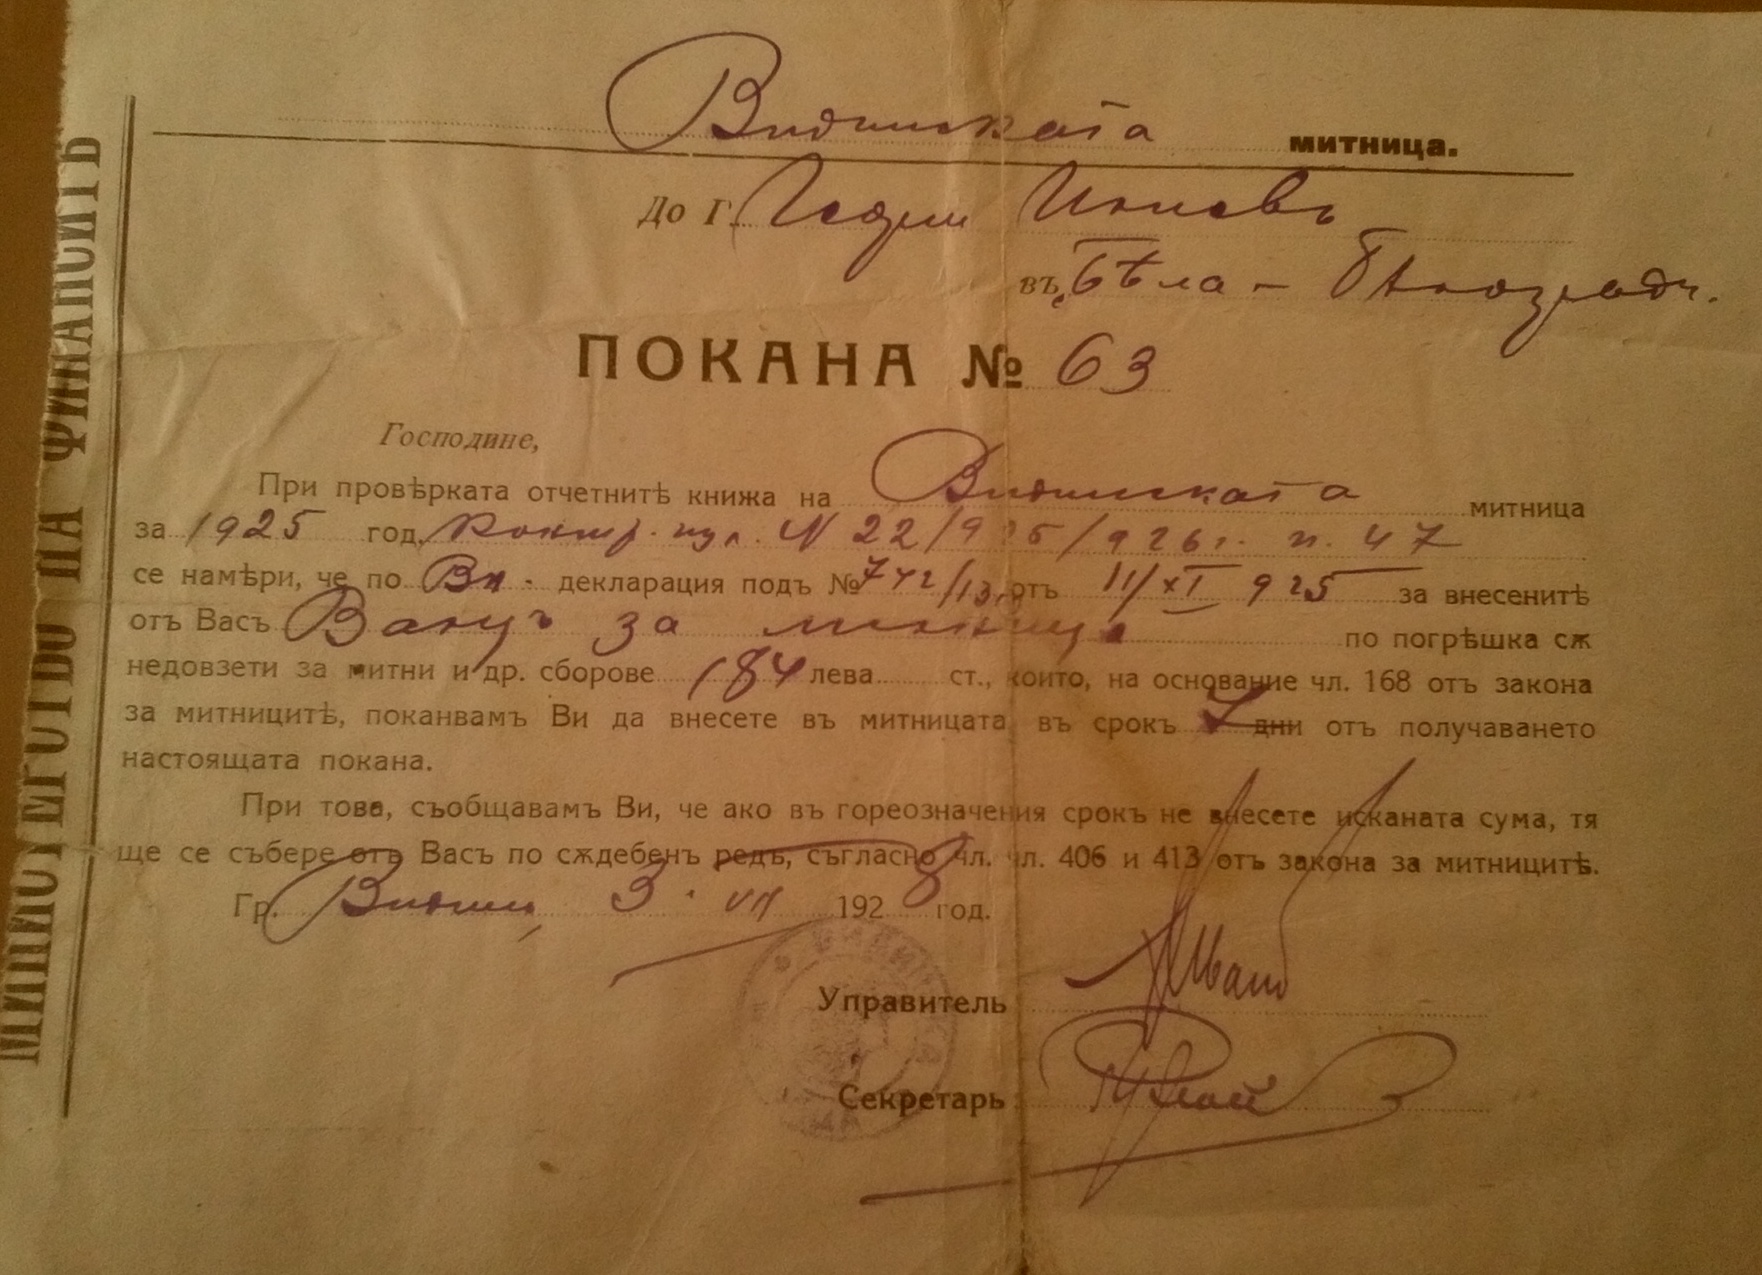 МИНИСТЕРСТВО НА ФИНАНСИТѢ
Видинската митница.
До Г. Иниевъ
въ с. Бѣла – Бѣлоградч.
ПОКАНА № 63
Господине,
При провѣрката отчетнитѣ книжа на Видинската митница
за 1925 год. Контр. N 22/925/926 г. п. 47
се намѣри, че по Вн. декларация подъ № 742/13 отъ 11/XI 925 за внесенитѣ
отъ Васъ Валцъ за мелница по погрѣшка сѫ
недовзети за митни и др. сборове 184 лева ст., които, на основание чл. 168 отъ закона
за митницитѣ, поканвамъ Ви да внесете въ митницата въ срокъ 7 дни отъ получаването
настоящата покана.
При това, съобщавамъ Ви, че ако въ гореозначения срокъ не внесете исканата сума, тя
ще се събере отъ Васъ по сѫдебенъ редъ, съгласно чл. чл. 406 и 413 отъ закона за митницитѣ.
Гр. Видинъ, 3. VII 1928 год.
Управитель
Секретарь